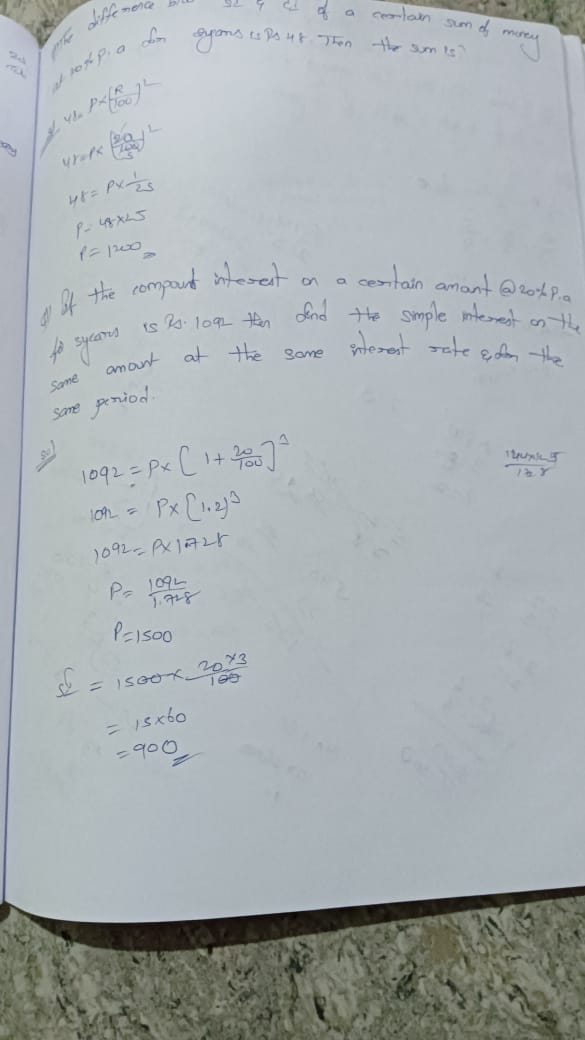 The difference b/w SI & CI of a certain sum of money
at 20% p.a for 2years is Rs 48. Then the sum is?
48= P×[R/100]²
48=P×[20/100]²
5
48= P×1/25
P= 48×25
P= 1200
Q) If the compound interest on a certain amant @20% P.a
fo 3years is Rs. 1092 then find the simple interest on the
same amount at the same interest rate & for the
same period.
Sol)
1092 = P× [1+ 20/100]³
1092 = P× [1.2]³
1092 = P×1.728
P= 1092/1.728
P=1500
SI = 1500× 20×3/100
= 15×60
=900